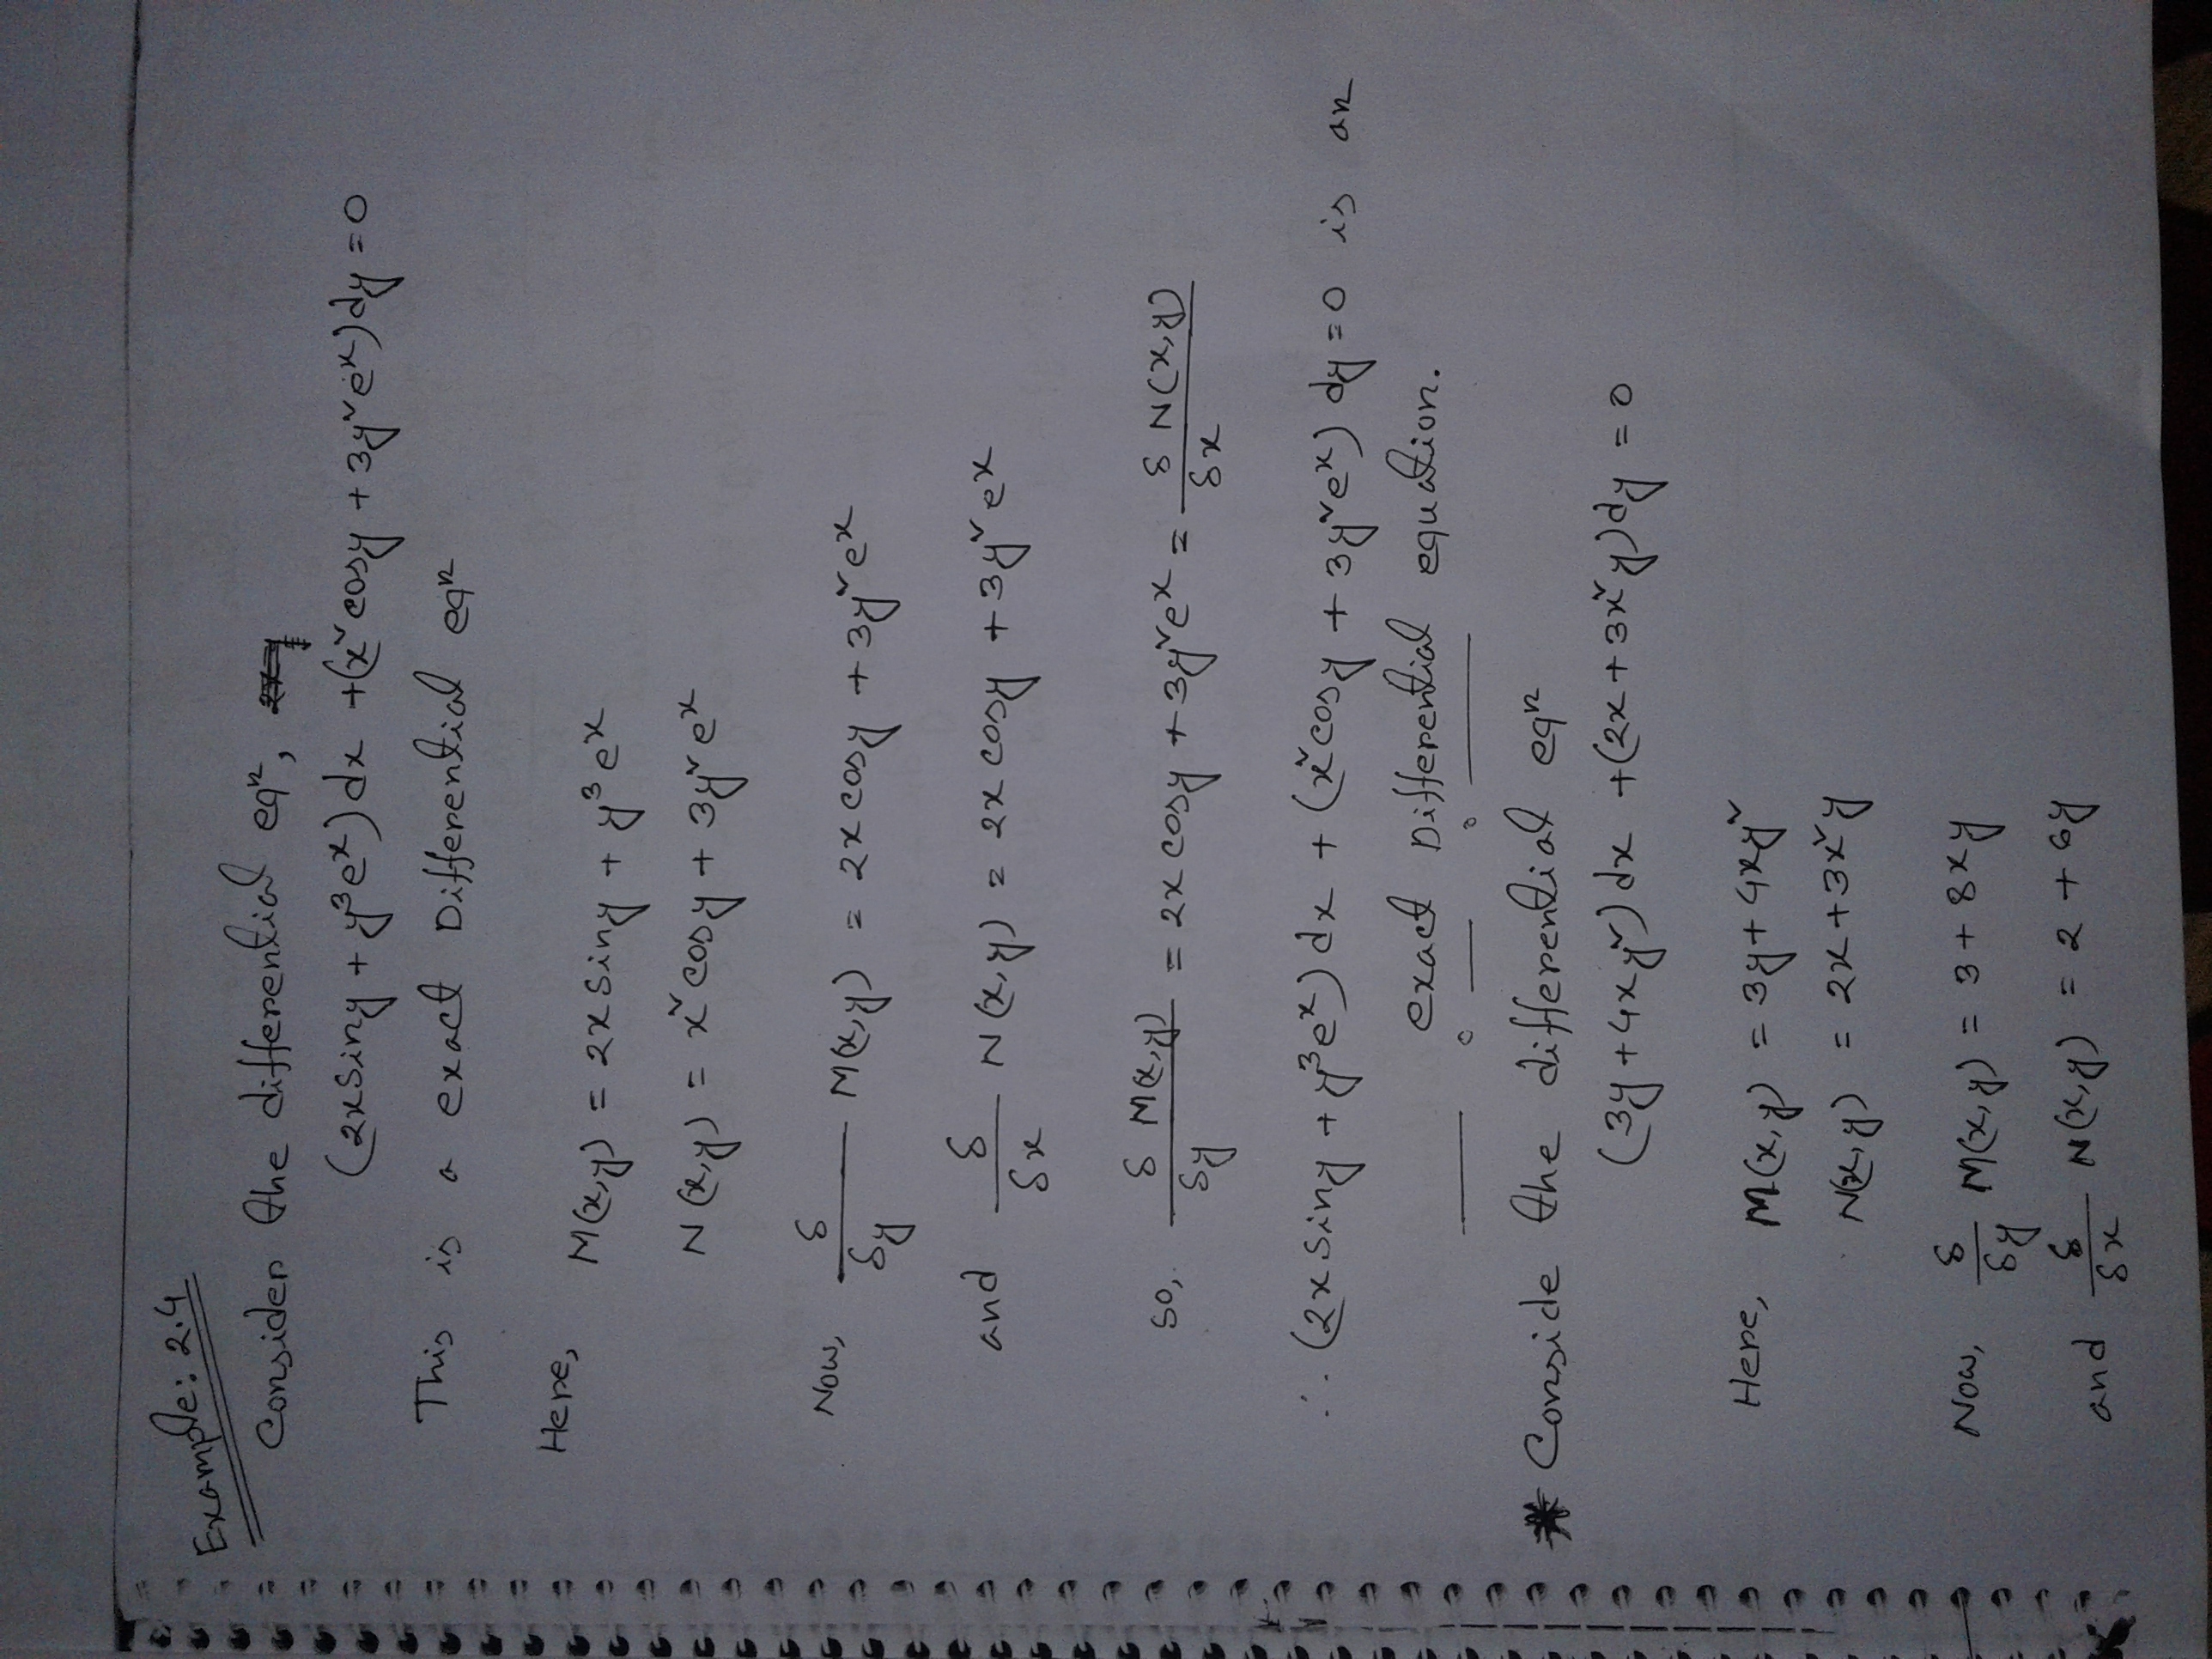 Example: 2.4
Consider the differential eqⁿ,
(2x siny + y³eˣ) dx + (x² cosy + 3y² eˣ) dy = 0
This is a exact Differential eqⁿ
Here, M(x,y) = 2x siny + y³ eˣ
N(x,y) = x² cosy + 3y² eˣ
Now, δ/δy M(x,y) = 2x cosy + 3y² eˣ
and δ/δx N(x,y) = 2x cosy + 3y² eˣ
So, δ M(x,y)/δy = 2x cosy + 3y² eˣ = δ N(x,y)/δx
∴ (2x siny + y³eˣ) dx + (x² cosy + 3y² eˣ) dy = 0 is an
exact Differential equation.
* Conside the differential eqⁿ
(3y + 4xy²) dx + (2x + 3x²y) dy = 0
Here, M(x,y) = 3y + 4xy²
N(x,y) = 2x + 3x²y
Now, δ/δy M(x,y) = 3 + 8xy
and δ/δx N(x,y) = 2 + 6y